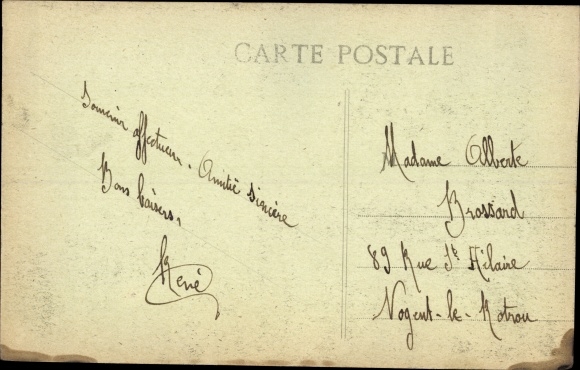 CARTE POSTALE
Souvenir affectueux. Amitié sincère
Bons baisers.
René
Madame Alberte
Brossard
89 Rue St Hilaire
Nogent-le-Rotrou